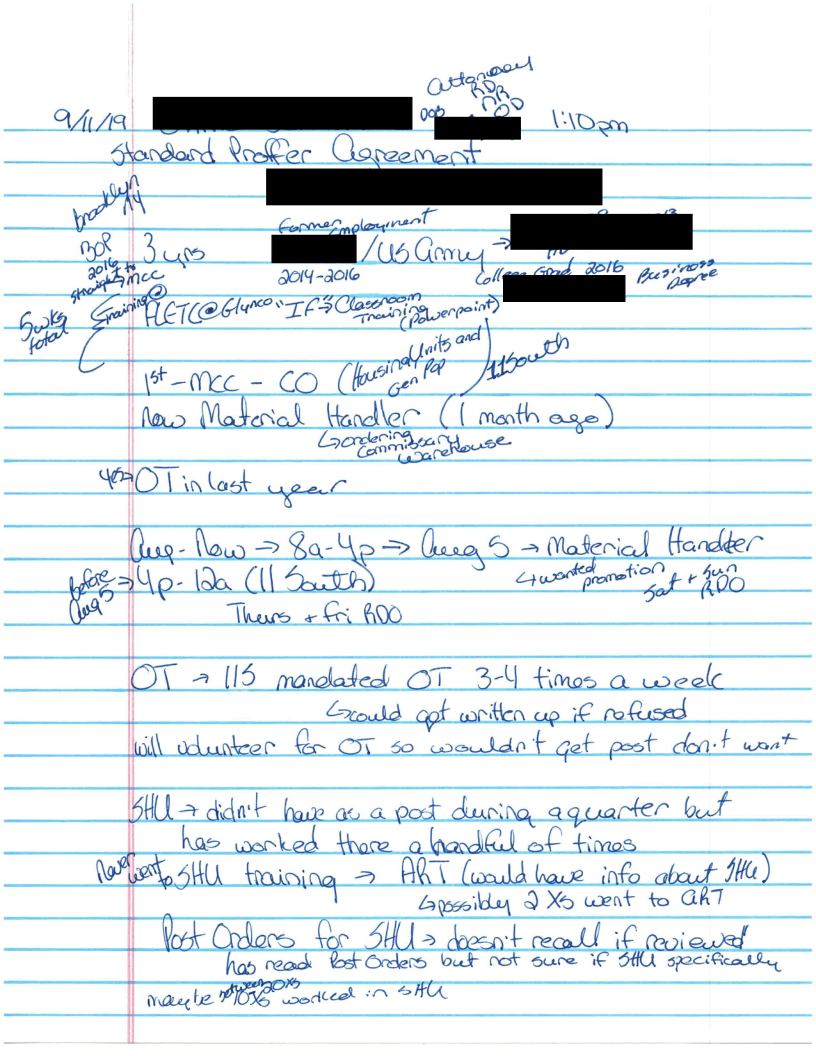 attorney
RDR
DR
OD
9/11/19 DOB 1:10pm
Standard Proffer Agreement
brooklyn
NY
Former Employment
BOP 3 yrs /US Army →
2016
straight to
MCC
2014-2016 College Grad 2016 Business
Degree
5 wks
total
training@
FLETC@Glynco "IF→Classroom
Training
(Powerpoint)
1st - MCC - CO (Housing Units and
Gen Pop
11 South
Now Material Handler (1 month ago)
↳ordering
Commissary
Warehouse
yes→OT in last year
Aug-Now → 8a-4p → Aug 5 → Material Handler
↳wanted
promotion
Sat + Sun
RDO
before
Aug 5
→4p-12a (11 South)
Thurs + Fri RDO
OT → 115 mandated OT 3-4 times a week
↳could get written up if refused
will volunteer for OT so wouldn't get post don't want
SHU → didn't have as a post during a quarter but
has worked there a handful of times
Never
went
to SHU training → ART (would have info about SHU)
↳possibly 2 Xs went to ART
Post Orders for SHU → doesn't recall if reviewed
has read Post Orders but not sure if SHU specifically
between 20Xs
maybe 10Xs worked in SHU